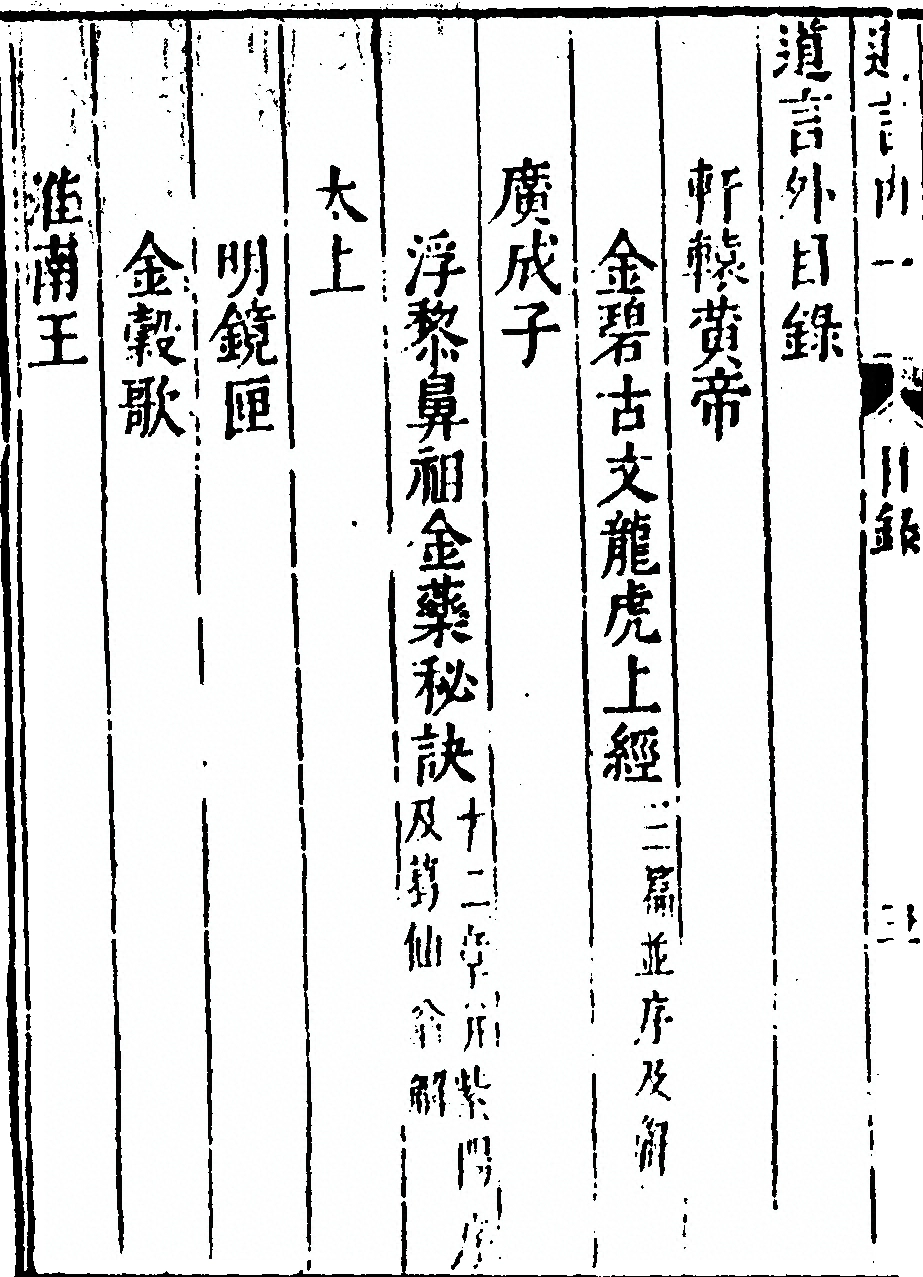 道言內一 目錄 三
道言外目錄
軒轅黃帝
金碧古文龍虎上經 三篇並序及解
廣成子
浮黎鼻祖金藥秘訣 十二章并紫陽序
及葛仙翁解
太上
明鏡匣
金穀歌
淮南王